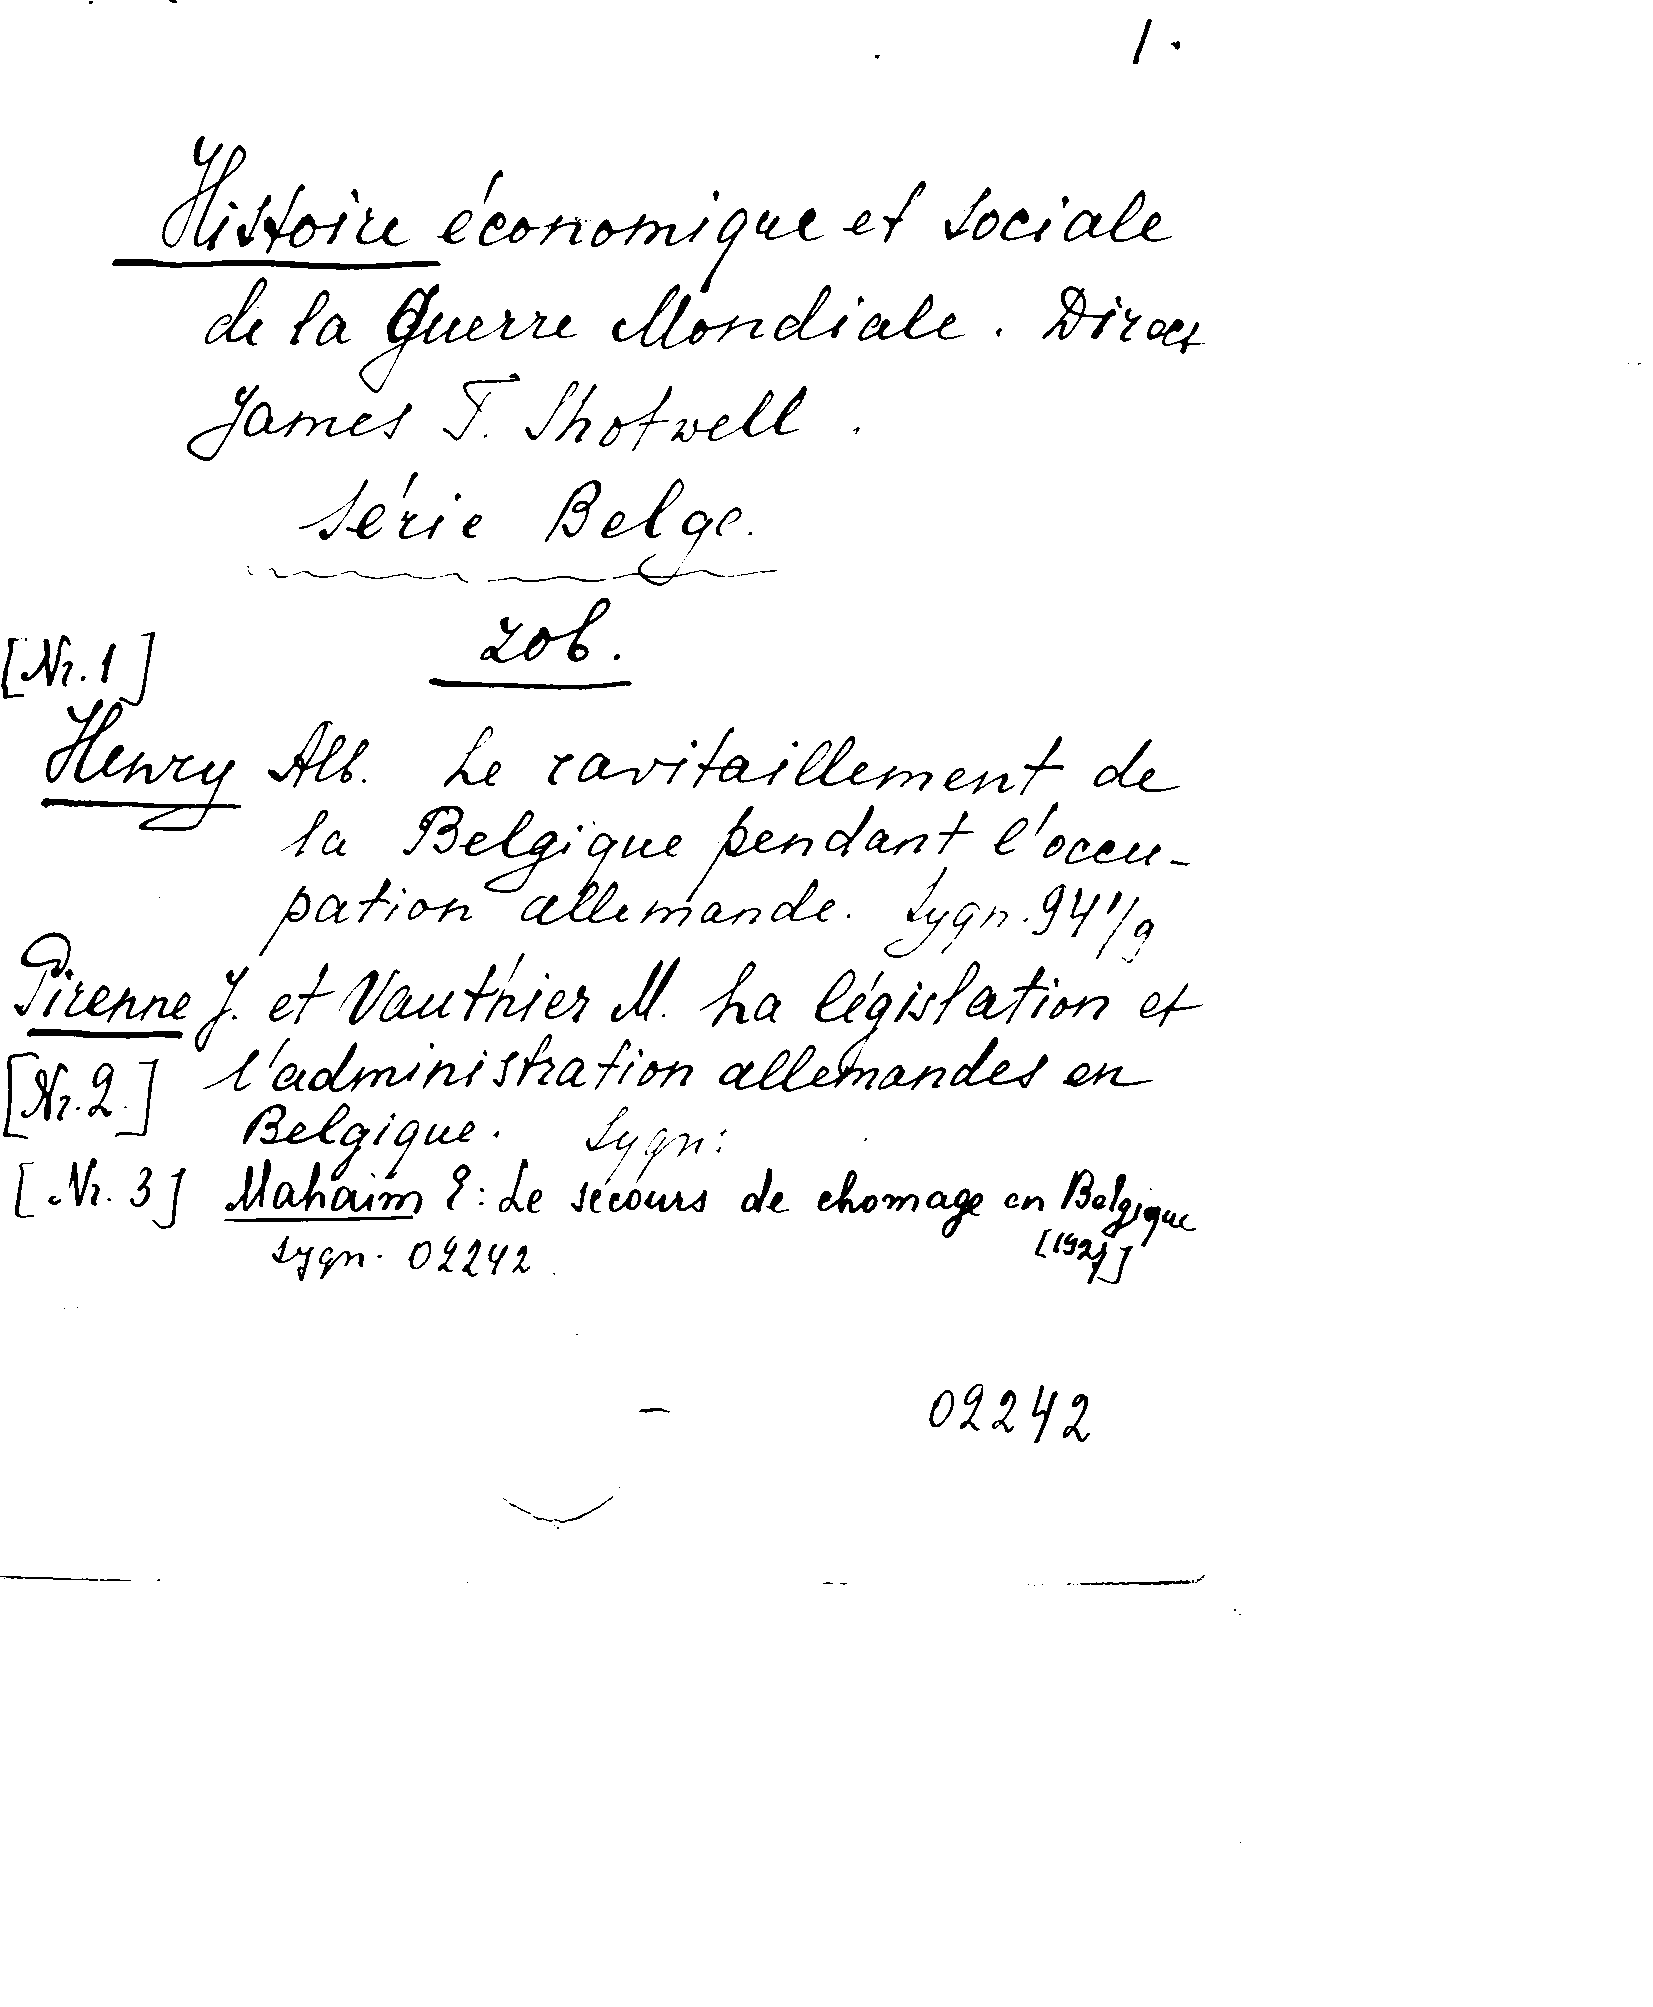 1.
Histoire économique et sociale
de la Guerre Mondiale. Direct
James T. Shotwell.
Série Belge.
zob.
[Nr. 1]
Henry Alb. Le ravitaillement de
la Belgique pendant l'occu-
pation allemande. Sygn. 941/9
Pirenne J. et Vauthier M. La législation et
[Nr. 2.] l'administration allemandes en
Belgique. Sygn:
[Nr. 3] Mahaim E: Le secours de chomage en Belgique
Sygn. 02242
02242